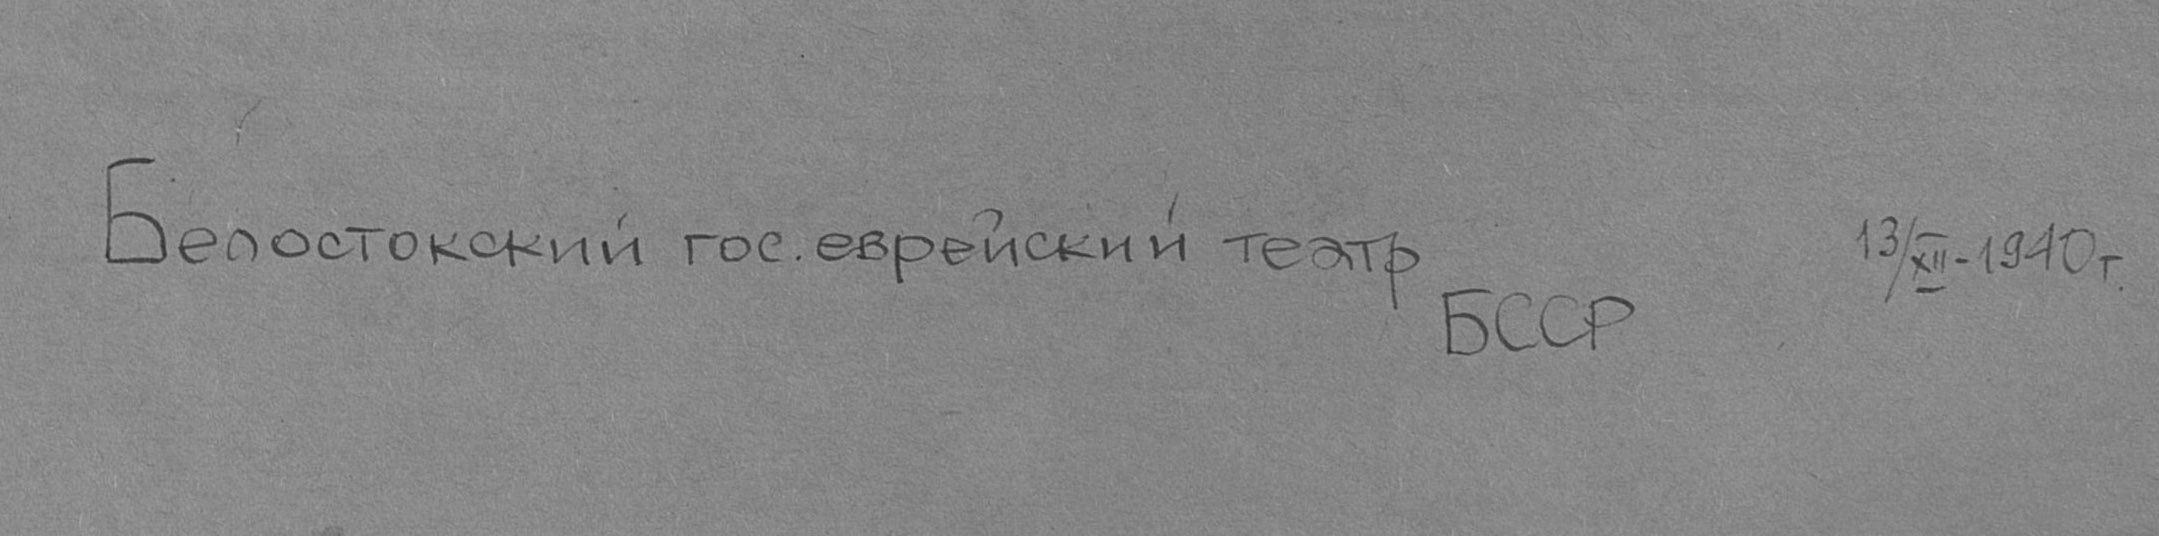 Белостокский гос. еврейский театр
БССР
13/XII-1940 г.